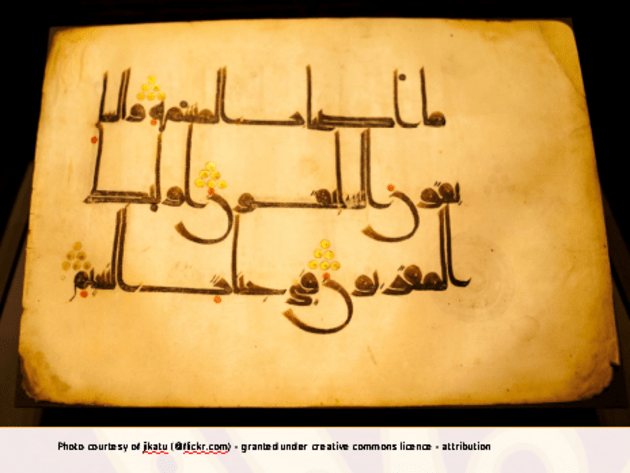 ما اصحاب المشمه والسا
بقون السبقون اولئك
المقربون في جنات النعيم
Photo courtesy of jikatu (@flickr.com) - granted under creative commons licence - attribution